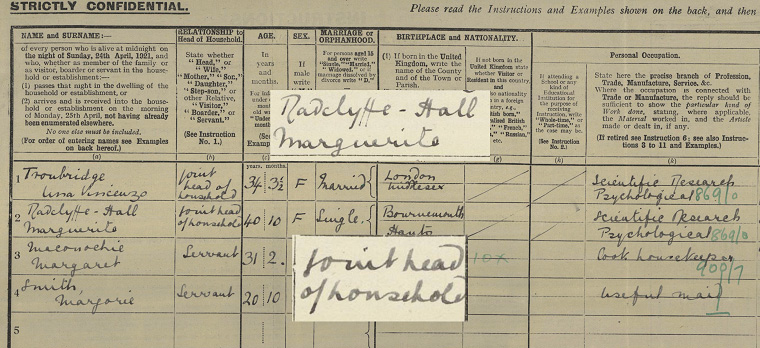 STRICTLY CONFIDENTIAL.
Please read the Instructions and Examples shown on the back, and then
NAME and SURNAME:—
of every person who is alive at midnight on
the night of Sunday, 24th April, 1921, and
who, whether as member of the family or
as visitor, boarder or servant in the house-
hold or establishment:—
(1) passes that night in the dwelling of the
household or establishment, or
(2) arrives and is received into the house-
hold or establishment on the morning
of Monday, 25th April, not having already
been enumerated elsewhere.
No one else must be included.
(For order of entering names see Examples
on back hereof.)
(a)
RELATIONSHIP to
Head of Household.
State whether
"Head," or
"Wife,"
"Mother," "Son,"
"Daughter,"
"Step-son," or
other Relative,
"Visitor,"
"Boarder," or
"Servant."
(See Instruction
No. 1.)
(b)
AGE.
In
years
and
months.
SEX.
If
male
MARRIAGE or
ORPHANHOOD.
For persons aged 15
and over write
"Single," "Married,"
"Widowed," or if
marriage dissolved by
divorce write "D."
BIRTHPLACE and NATIONALITY.
(1) If born in the United
Kingdom, write the
name of the County
and of the Town or
Parish.
If not born in the
United Kingdom state
whether Visitor or
Resident in this country
(g)
If attending a
School or any
kind of
Educational
Institution for
the purpose of
receiving
Instruction, write
"Whole-time," or
"Part-time," as
the case may be.
(See Instruction
No. 2.)
(h)
Personal Occupation.
State here the precise branch of Profession,
Trade, Manufacture, Service, &c.
Where the occupation is connected with
Trade or Manufacture, the reply should be
sufficient to show the particular kind of
Work done, stating, where applicable,
the Material worked in, and the Article
made or dealt in, if any.
(If retired see Instruction 6; see also Instructions
8 to 11 and Examples.)
(k)
Radclyffe-Hall
Marguerite
years. months.
1 Troubridge
Una Vincenzo
Joint
head of
household
34 3½ F Married
London
Middlesex
Scientific Research
Psychological 869/0
2 Radclyffe-Hall
Marguerite
Joint head
of household
40 10 F Single
Bournemouth
Hants
Scientific Research
Psychological 869/0
3 Maconochie
Margaret
Servant 31 2.
10x
Cook housekeeper
900/7
4 Smith,
Margorie
Servant 20 10
useful maid
Joint head
of household
5